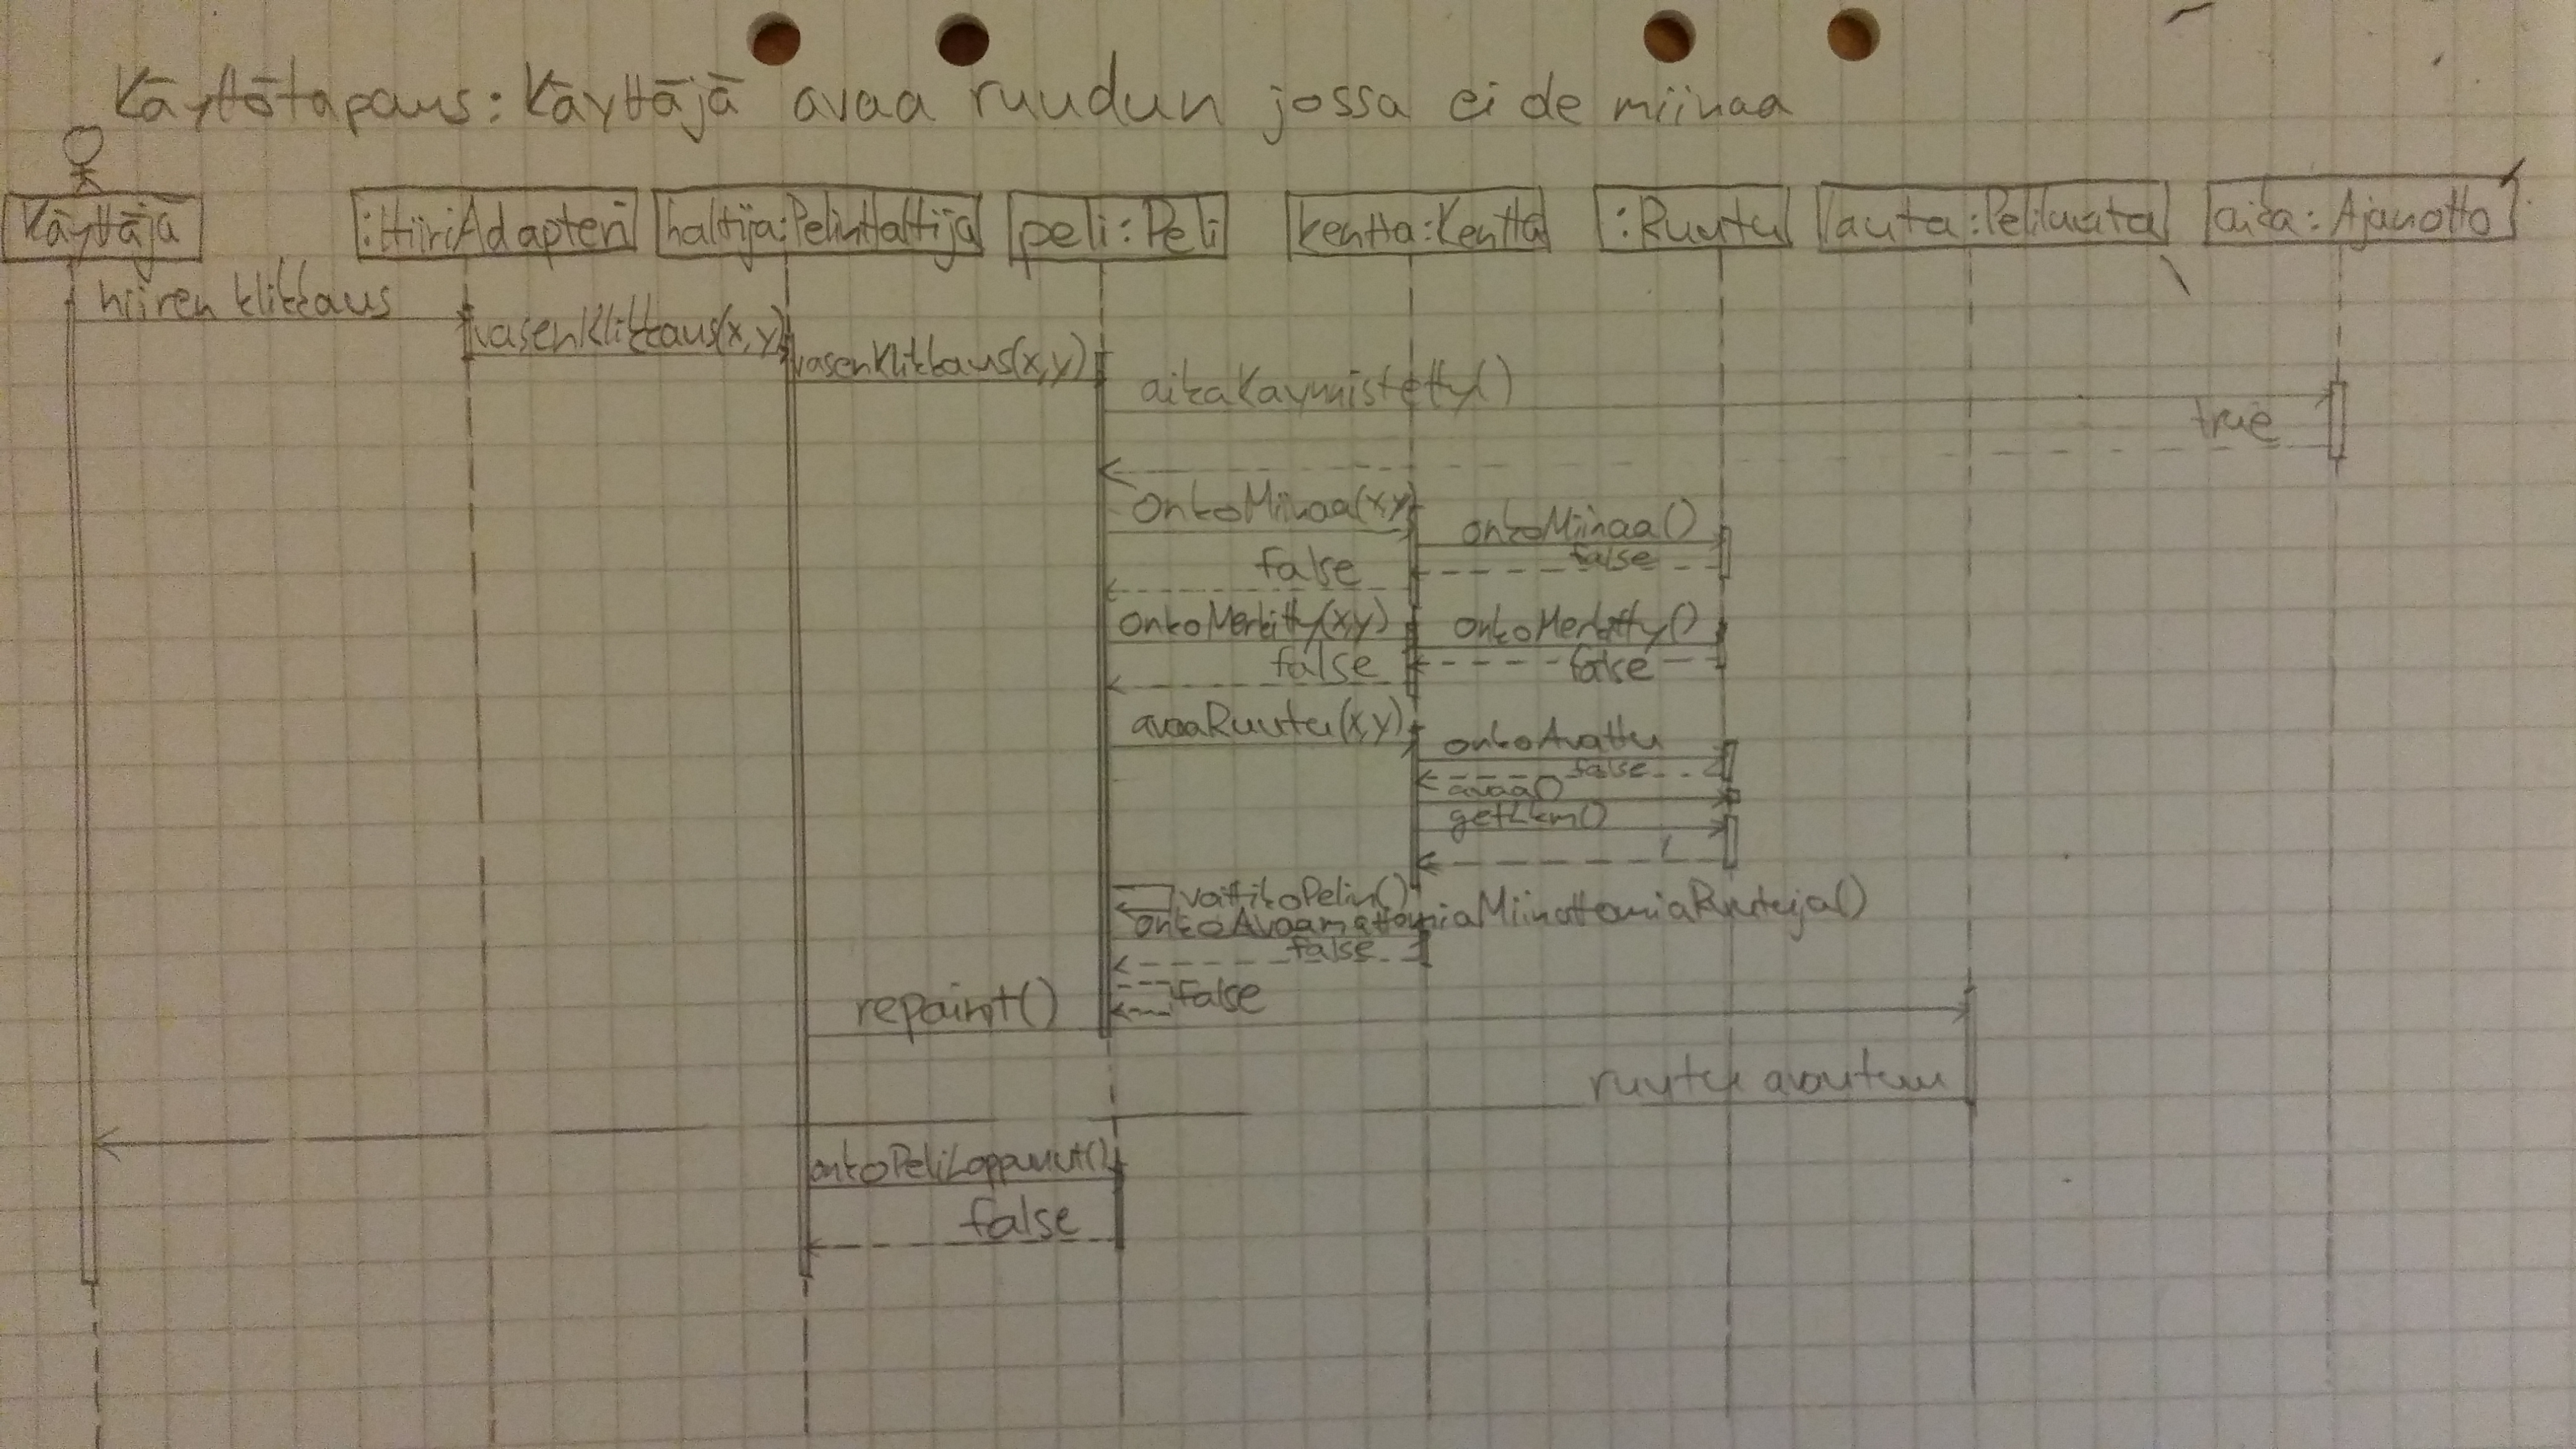 Käyttötapaus: Käyttäjä avaa ruudun jossa ei ole miinaa
Käyttäjä :HiiriAdapteri haltija:PelinHaltija peli:Peli kentta:Kentta :Ruutu lauta:Pelilauta aika:Ajanotto
hiiren klikkaus
vasenKlikkaus(x,y)
vasenKlikkaus(x,y)
aikaKaynnistetty()
true
onkoMiinaa(x,y)
onkoMiinaa()
false
false
onkoMerkitty(x,y) onkoMerkitty()
false false
avaaRuutu(x,y)
onkoAvattu
false
avaa()
getLkm()
1
voittikoPelin()
onkoAvaamattomiaMiinattomiaRuutuja()
false
false
repaint()
ruutu avautuu
onkoPeliLoppunut()
false